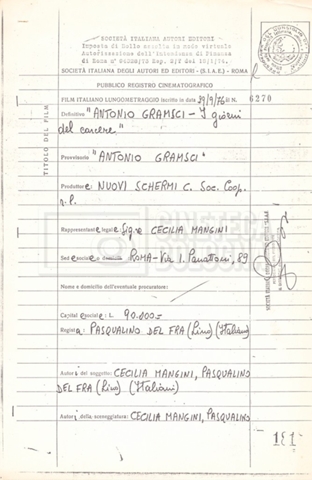 SOCIETÀ ITALIANA AUTORI EDITORI
Imposta di Bollo assolta in modo virtuale
Autorizzazione dell'Intendenza di Finanza
di Roma n°
SOCIETÀ ITALIANA DEGLI AUTORI ED EDITORI - (S.I.A.E.) - ROMA
PUBBLICO REGISTRO CINEMATOGRAFICO
FILM ITALIANO LUNGOMETRAGGIO iscritto in data 29/9/76 al N. 6270
TITOLO DEL FILM
Definitivo "ANTONIO GRAMSCI - I giorni
del carcere"
Provvisorio "ANTONIO GRAMSCI"
Produttore: NUOVI SCHERMI C. Soc. Coop.
r.l.
Rappresentante legale Sig.a CECILIA MANGINI
Sede sociale ROMA - Via I. 89
Nome e domicilio dell'eventuale procuratore:
Capitale sociale: L. 90.000=
Regista: PASQUALINO DEL FRA (Lino) (Italiano)
Autori del soggetto: CECILIA MANGINI, PASQUALINO
DEL FRA (Lino) (Italiani)
Autori della sceneggiatura: CECILIA MANGINI, PASQUALINO
CINETECA